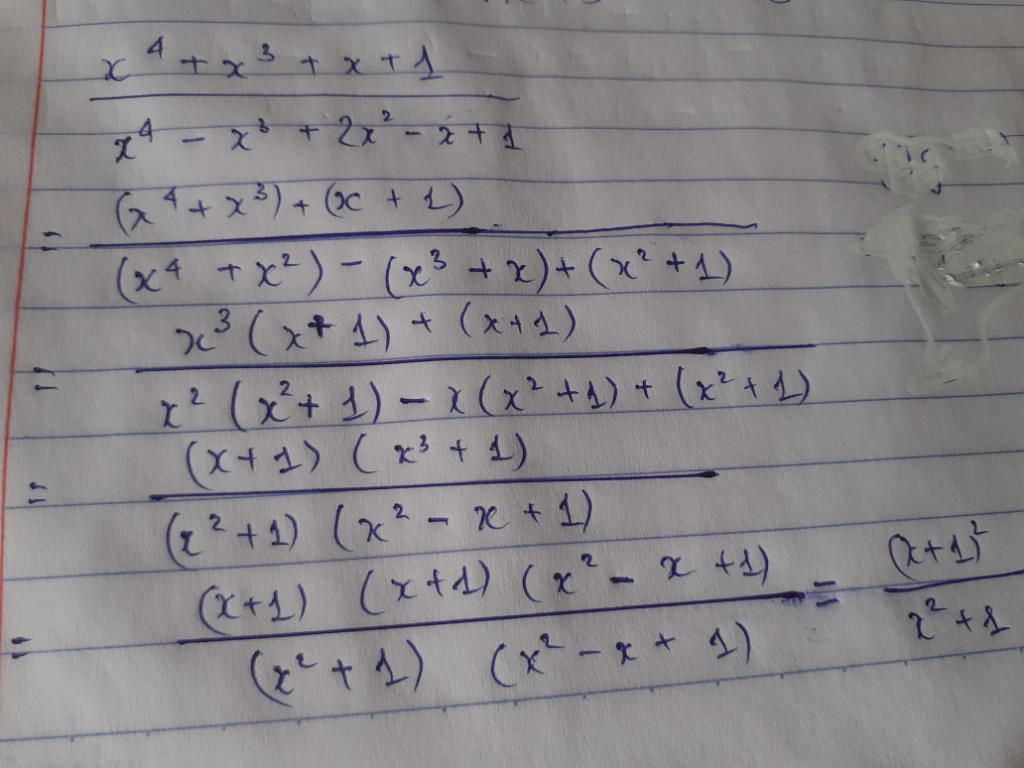 x⁴ + x³ + x + 1
x⁴ - x³ + 2x² - x + 1
(x⁴ + x³) + (x + 1)
= (x⁴ + x²) - (x³ + x) + (x² + 1)
x³ (x + 1) + (x + 1)
= x² (x² + 1) - x (x² + 1) + (x² + 1)
(x + 1) (x³ + 1)
= (x² + 1) (x² - x + 1)
(x + 1) (x + 1) (x² - x + 1) = (x + 1)²
= (x² + 1) (x² - x + 1) x² + 1